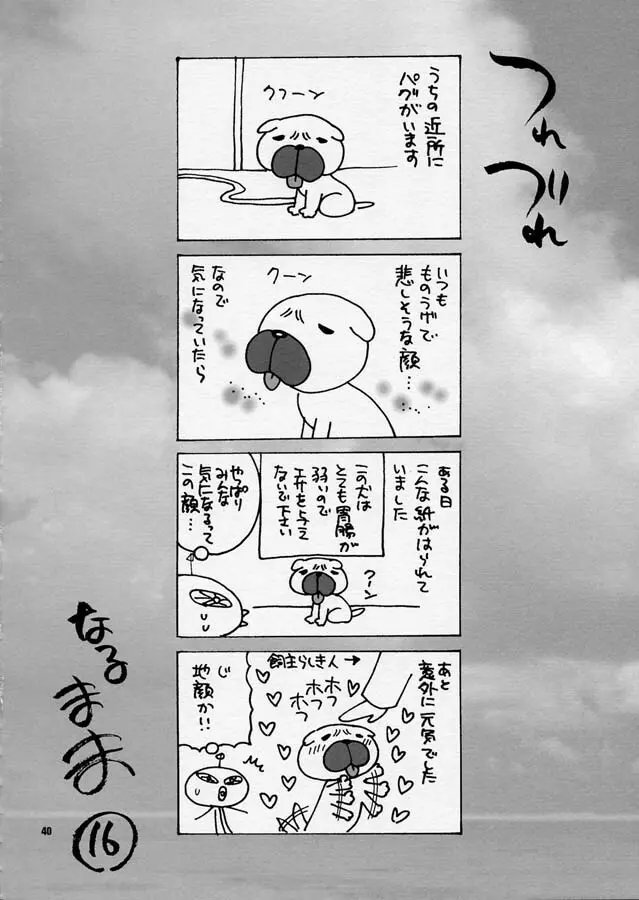 つれ
づれ
なる
まま
⑯
うちの近所に
パグがいます
クフーン
いつも
ものうげで
悲しそうな顔…
クーン
なので
気になっていたら
ある日
こんな紙がはられて
いました
この犬は
とても胃腸が
弱いので
エサを与え
ないで下さい
クーン
やっぱり
みんな
気になるって
この顔…
あと
意外に元気でした
飼主らしき人→
ホフ
ホフ
ホフ
じ
地顔か!!
40